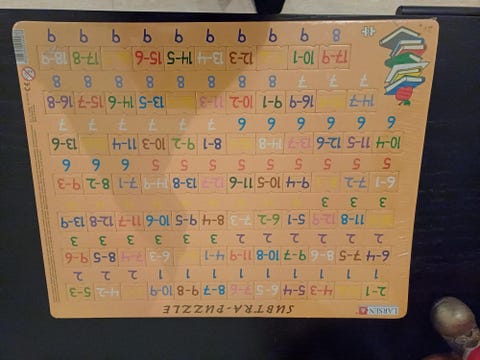 LARSEN SUBTRA-PUZZLE
2-1 4-3 5-4 6-5 7-6 8-7 9-8 10-9 4-2 5-3
1 1 1 1 1 1 1 1 1 2 2 2
6-4 7-5 8-6 9-7 10-8 11-9 4-1 6-3 7-4 8-5 9-6
2 2 2 2 2 2 3 3 3 3 3 3
11-8 12-9 5-1 6-2 7-3 8-4 9-5 10-6 11-7 12-8 13-9
3 3 3
6-1 7-2 9-4 10-5 11-6 12-7 13-8 14-9 7-1 8-2 9-3
5 5 5 5 5 5 5 5 5 6 6 6
10-4 11-5 12-6 13-7 14-8 8-1 9-2 10-3 11-4 13-6
6 6 6 6 6 6 7 7 7 7 7 7
14-7 16-9 9-1 10-2 11-3 13-5 14-6 15-7 16-8
7 7 7 8 8 8 8 8 8 8 8
17-9 10-1 12-3 13-4 14-5 15-6 17-8 18-9
8 9 9 9 9 9 9 9 9 9